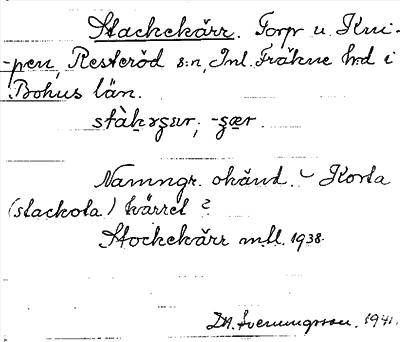 Stackekärr. Torp u. Kni-
-pen, Resteröd s:n, Inl. Fräkne hd i
Bohus län.
stàkəʂær; -ʂær.
Namngr. okänd. ~ Korta
(stackota) kärret?
Stockekärr mtl. 1938.
D.A. Svenungsson. 1941.